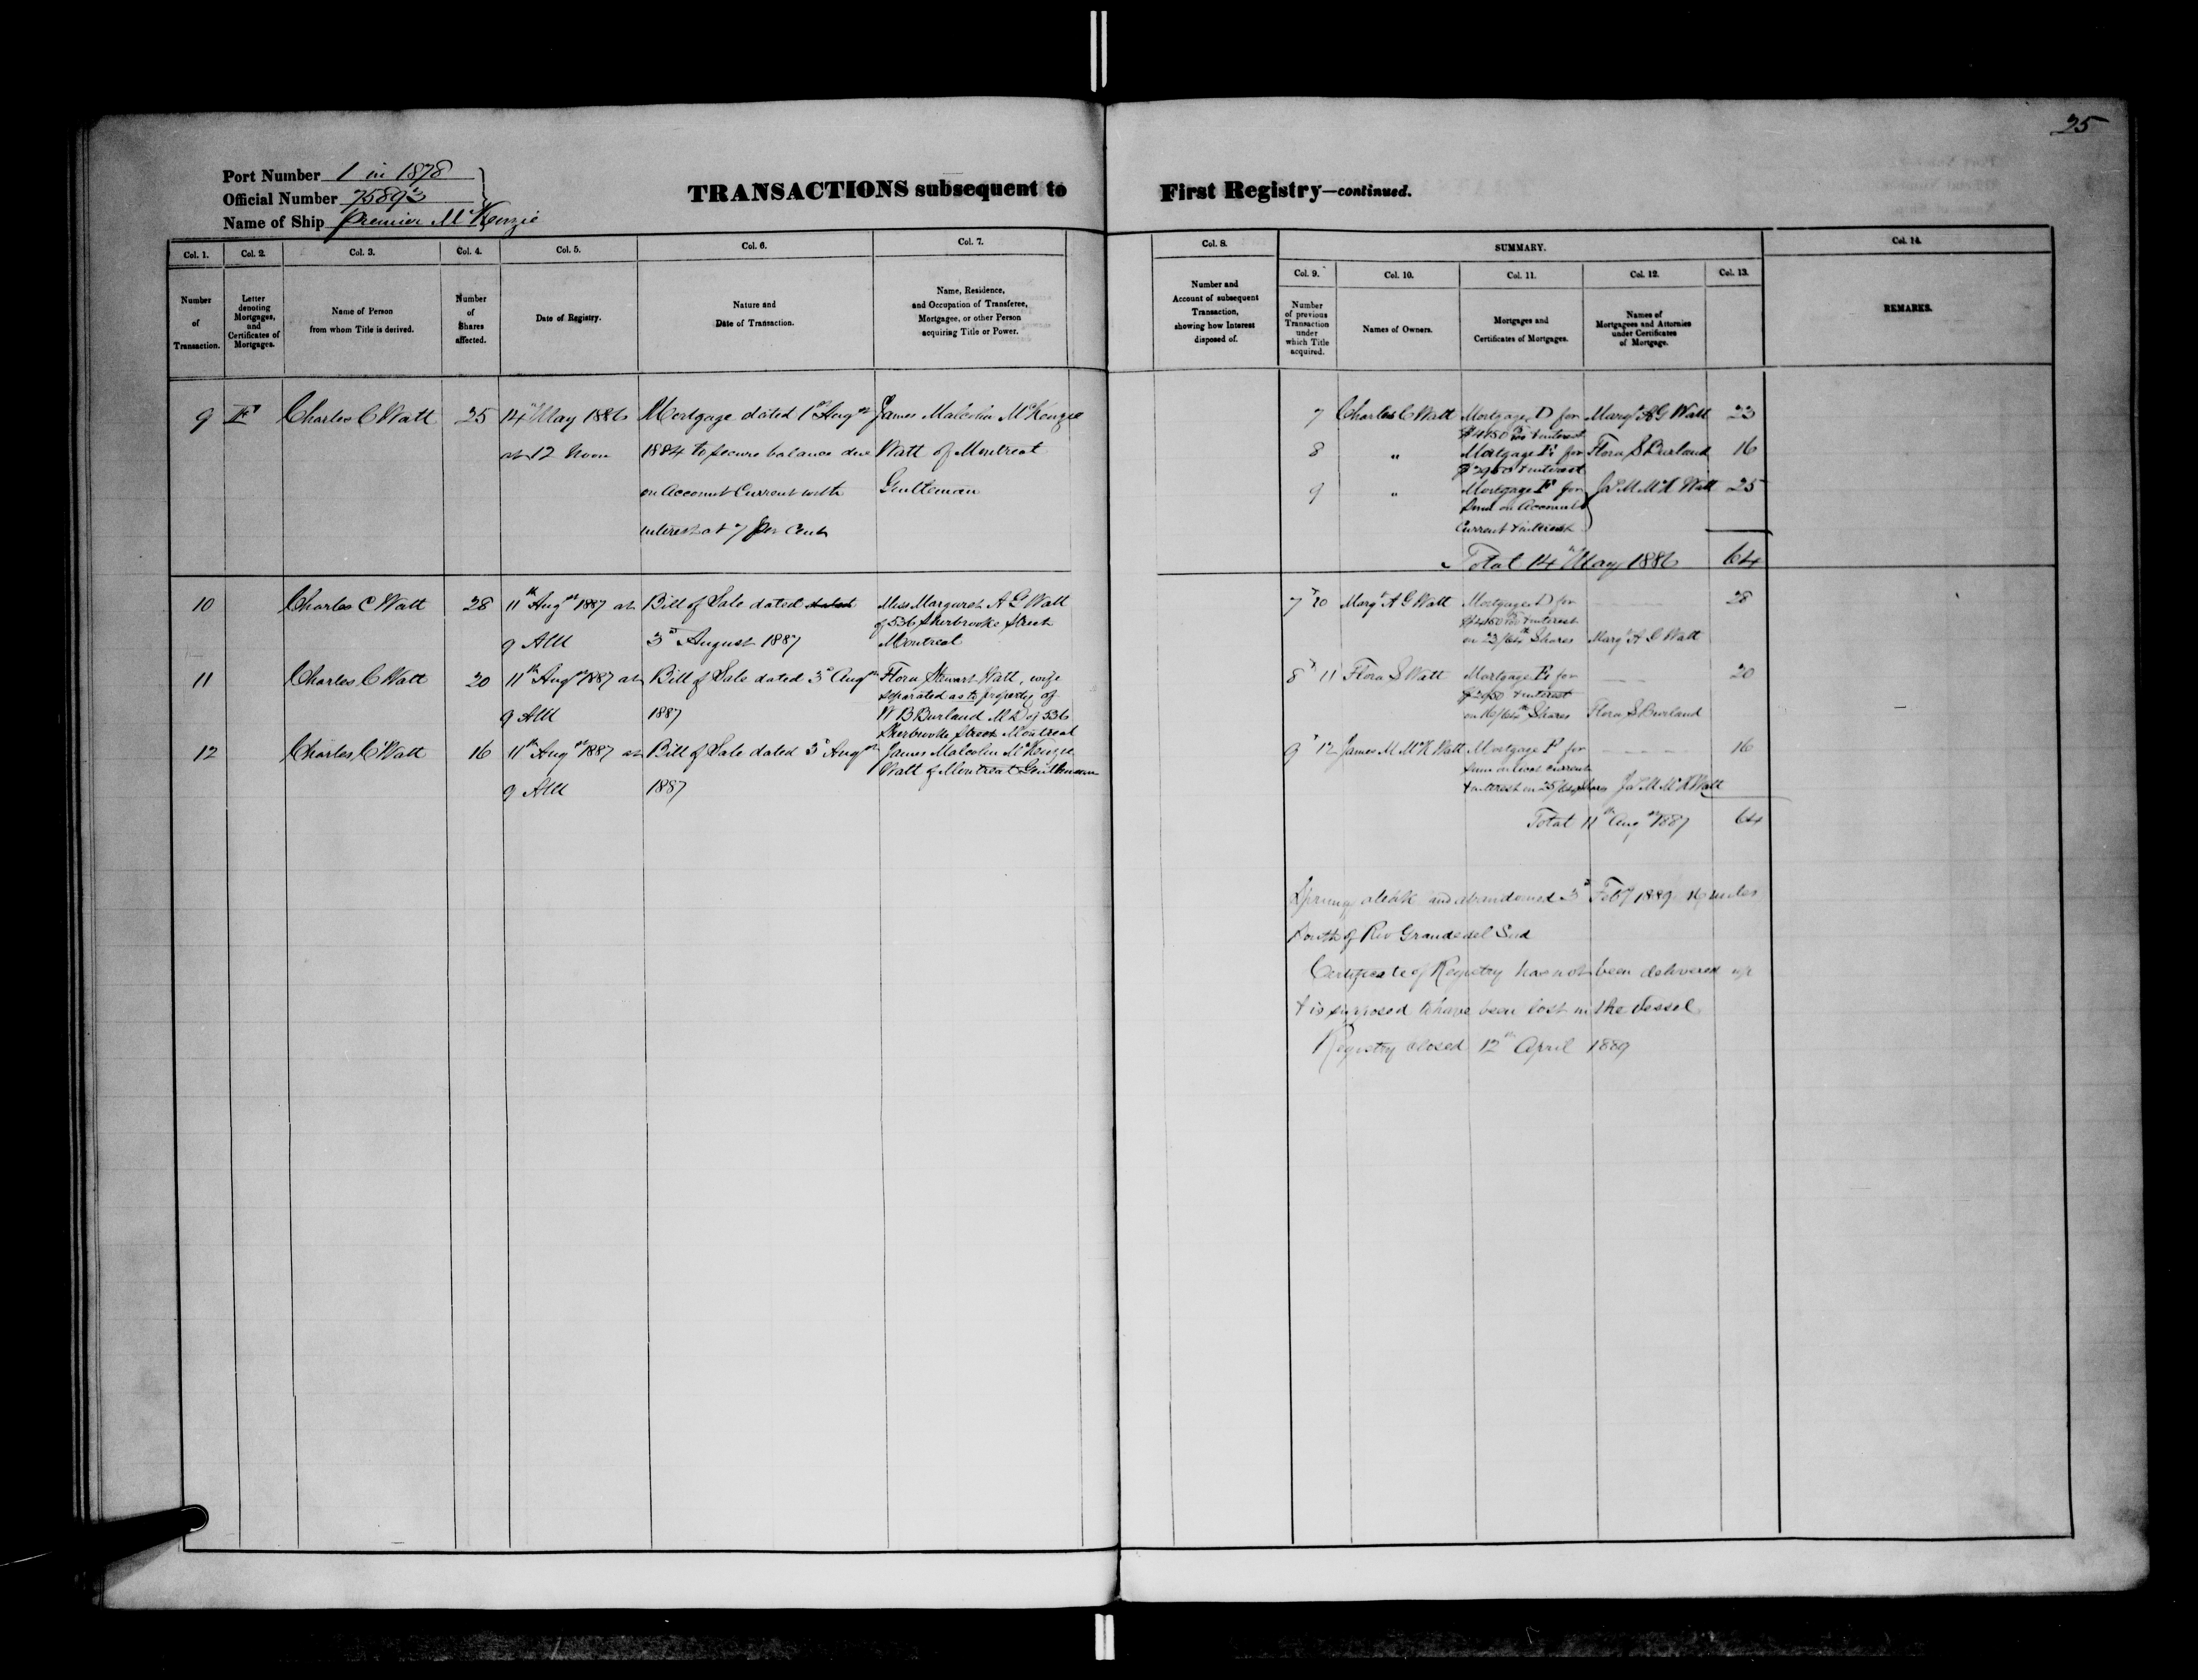 25
Port Number 1 in 1878
Official Number 75893
Name of Ship Premier McKenzie
TRANSACTIONS subsequent to First Registry—continued.
Col. 1. Col. 2. Col. 3. Col. 4. Col. 5. Col. 6. Col. 7. Col. 8. SUMMARY. Col. 14.
Col. 9. Col. 10. Col. 11. Col. 12. Col. 13.
Number
of
Transaction.
Letter
denoting
Mortgages,
and
Certificates of
Mortgages.
Name of Person
from whom Title is derived.
Number
of
Shares
affected.
Date of Registry.
Nature and
Date of Transaction.
Name, Residence,
and Occupation of Transferee,
Mortgagee, or other Person
acquiring Title or Power.
Number and
Account of subsequent
Transaction,
showing how Interest
disposed of.
Number
of previous
Transaction
under
which Title
acquired.
Names of Owners.
Mortgages and
Certificates of Mortgages.
Names of
Mortgagees and Attornies
under Certificates
of Mortgage.
REMARKS.
9 F Charles C Watt 25
14th May 1886
at 12 Noon
Mortgage dated 1st Augst
1884 to secure balance due
on Account Current with
interest at 7 per Cent
James Malcolm McKenzie
Watt of Montreal
Gentleman
7 Charles C Watt Mortgage D for Margt A G Watt 23
& interest
8 " Mortgage E for Flora S Burland 16
$2950 & interest
9 " Mortgage F for Jas M McK Watt 25
Sum on Account
Current & interest
Total 14th May 1886 64
10 Charles C Watt 28
11th Augst 1887 at
9 AM
Bill of Sale dated dated
3d August 1887
Miss Margaret A G Watt
of 536 Sherbrooke Street
Montreal
7 & 10 Margt A G Watt Mortgage D for 28
& interest
on 23/64th Shares Margt A G Watt
11 Charles C Watt 20
11th Augst 1887 at
9 AM
Bill of Sale dated 3d Augst
1887
Flora Stewart Watt, wife
separated as to property of
W B Burland MD of 536
Sherbrooke Street Montreal
8 & 11 Flora S Watt Mortgage E for 20
$2950 & interest
on 16/64th Shares Flora S Burland
12 Charles C Watt 16
11th Augst 1887 at
9 AM
Bill of Sale dated 3d Augst
1887
James Malcolm McKenzie
Watt of Montreal Gentleman
9 & 12 James M McK Watt Mortgage F for 16
sum on acct current
& interest on 25/64 Shares Jas M McK Watt
Total 11th Augst 1887 64
Sprung aleak and abandoned 3d Feby 1889 16 miles
South of Rio Grande del Sud
Certificate of Registry has not been delivered up
& is supposed to have been lost in the Vessel
Registry closed 12th April 1889